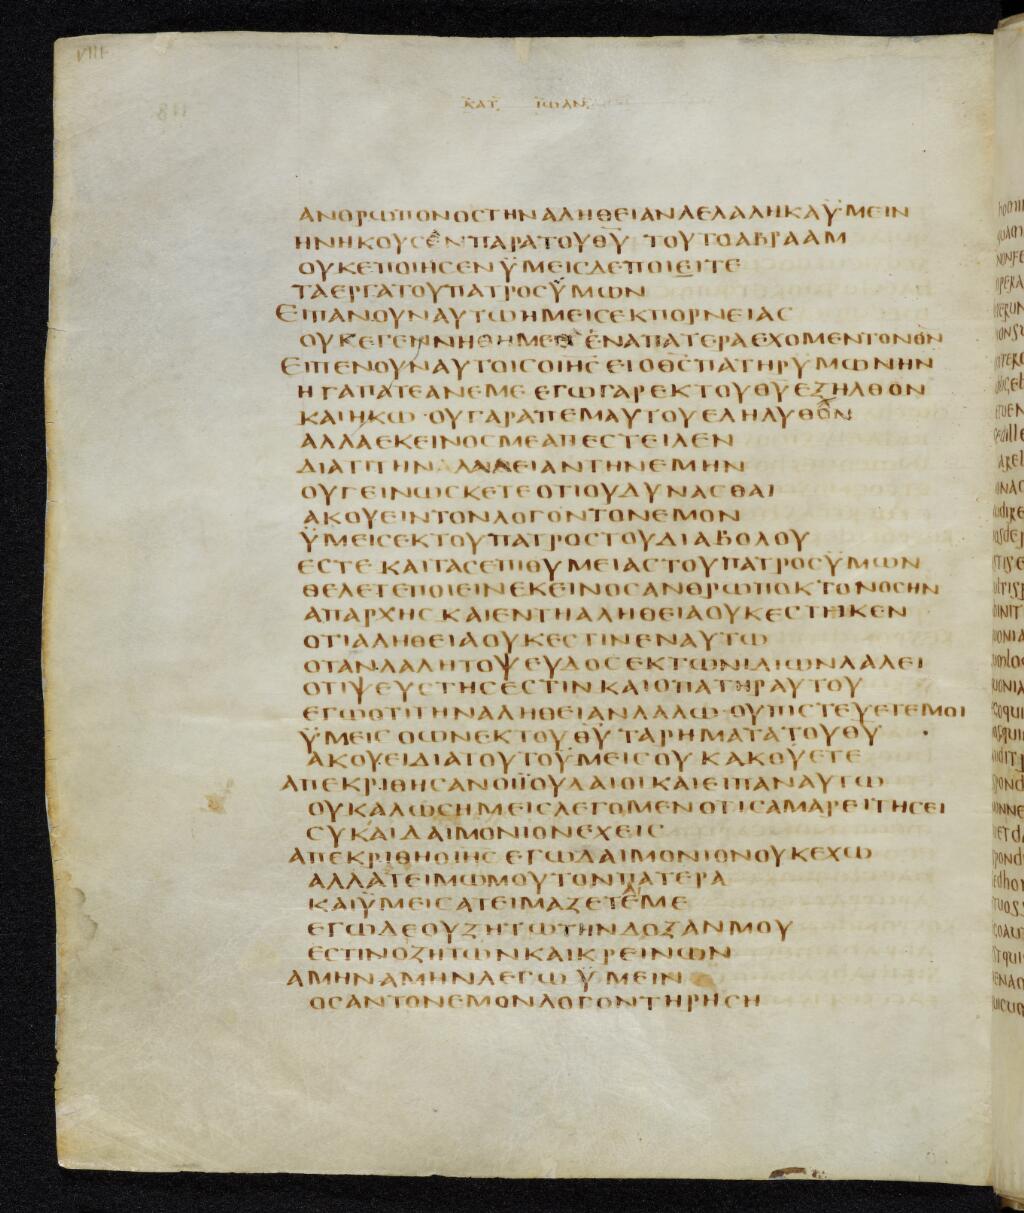 ΚΑΤ ΙΩΑΝ
ΑΝΘΡΩΠΟΝΟΣΤΗΝΑΛΗΘΕΙΑΝΛΕΛΑΛΗΚΑΫΜΕΙΝ
ΗΝΗΚΟΥΣΕΝΠΑΡΑΤΟΥΘΥ ΤΟΥΤΟΑΒΡΑΑΜ
ΟΥΚΕΠΟΙΗΣΕΝ ΫΜΕΙΣΔΕΠΟΙΕΙΤΕ
ΤΑΕΡΓΑΤΟΥΠΑΤΡΟΣΫΜΩΝ
ΕΙΠΑΝΟΥΝΑΥΤΩΗΜΕΙΣΕΚΠΟΡΝΕΙΑΣ
ΟΥΚΕΓΕΝΝΗΘΗΜΕΝ ΕΝΑΠΑΤΕΡΑΕΧΟΜΕΝΤΟΝΘΝ
ΕΙΠΕΝΟΥΝΑΥΤΟΙΣΟΙΗΣ ΕΙΟΘΣΠΑΤΗΡΥΜΩΝΗΝ
ΗΓΑΠΑΤΕΑΝΕΜΕ ΕΓΩΓΑΡΕΚΤΟΥΘΥΕΞΗΛΘΟΝ
ΚΑΙΗΚΩ·ΟΥΓΑΡΑΠΕΜΑΥΤΟΥΕΛΗΛΥΘΟΝ
ΑΛΛΑΕΚΕΙΝΟΣΜΕΑΠΕΣΤΕΙΛΕΝ
ΔΙΑΤΙΤΗΝ ΛΑΛΕΙΑΝΤΗΝΕΜΗΝ
ΟΥΓΕΙΝΩΣΚΕΤΕΟΤΙΟΥΔΥΝΑΣΘΑΙ
ΑΚΟΥΕΙΝΤΟΝΛΟΓΟΝΤΟΝΕΜΟΝ
ΫΜΕΙΣΕΚΤΟΥΠΑΤΡΟΣΤΟΥΔΙΑΒΟΛΟΥ
ΕΣΤΕ·ΚΑΙΤΑΣΕΠΙΘΥΜΕΙΑΣΤΟΥΠΑΤΡΟΣΫΜΩΝ
ΘΕΛΕΤΕΠΟΙΕΙΝΕΚΕΙΝΟΣΑΝΘΡΩΠΟΚΤΟΝΟΣΗΝ
ΑΠΑΡΧΗΣ ΚΑΙΕΝΤΗΑΛΗΘΕΙΑΟΥΚΕΣΤΗΚΕΝ
ΟΤΙΑΛΗΘΕΙΑΟΥΚΕΣΤΙΝΕΝΑΥΤΩ
ΟΤΑΝΛΑΛΗΤΟΨΕΥΔΟΣΕΚΤΩΝΙΔΙΩΝΛΑΛΕΙ
ΟΤΙΨΕΥΣΤΗΣΕΣΤΙΝΚΑΙΟΠΑΤΗΡΑΥΤΟΥ
ΕΓΩΟΤΙΤΗΝΑΛΗΘΕΙΑΝΛΑΛΩ·ΟΥΠΙΣΤΕΥΕΤΕΜΟΙ
ΫΜΕΙΣ ΟΩΝΕΚΤΟΥΘΥ ΤΑΡΗΜΑΤΑΤΟΥΘΥ
ΑΚΟΥΕΙΔΙΑΤΟΥΤΟΫΜΕΙΣΟΥΚΑΚΟΥΕΤΕ
ΑΠΕΚΡΙΘΗΣΑΝΟΙΪΟΥΔΑΙΟΙΚΑΙΕΙΠΑΝΑΥΤΩ
ΟΥΚΑΛΩΣΗΜΕΙΣΛΕΓΟΜΕΝΟΤΙΣΑΜΑΡΕΙΤΗΣΕΙ
ΣΥΚΑΙΔΑΙΜΟΝΙΟΝΕΧΕΙΣ
ΑΠΕΚΡΙΘΗΟΙΗΣ ΕΓΩΔΑΙΜΟΝΙΟΝΟΥΚΕΧΩ
ΑΛΛΑΤΕΙΜΩΜΟΥΤΟΝΠΑΤΕΡΑ
ΚΑΙΫΜΕΙΣΑΤΕΙΜΑΖΕΤΕΜΕ
ΕΓΩΔΕΟΥΖΗΤΩΤΗΝΔΟΞΑΝΜΟΥ
ΕΣΤΙΝΟΖΗΤΩΝΚΑΙΚΡΕΙΝΩΝ
ΑΜΗΝΑΜΗΝΛΕΓΩ ΫΜΕΙΝ
ΟΣΑΝΤΟΝΕΜΟΝΛΟΓΟΝΤΗΡΗΣΗ